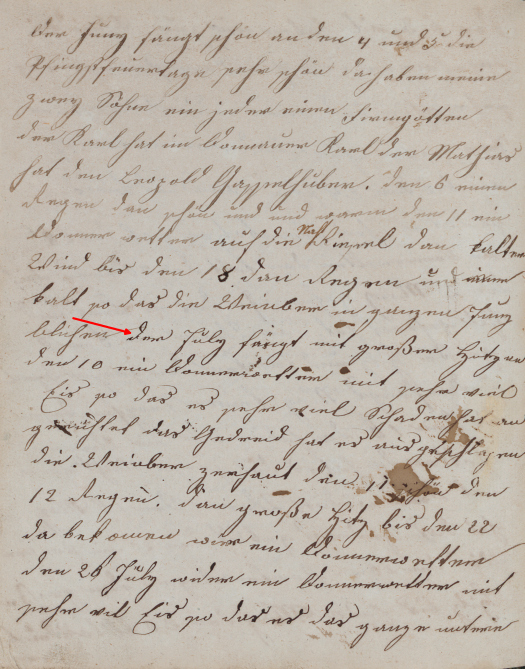 der Juny fängt schön an den 4 und 5 die
Pfingstfeuertage sehr schön da haben meine
zwey Söhne ein jeder einen Firmgötten
der Karl hat im Donnauer Karl der Mathias
hat den Leopold Gasselhuber. den 6 einen
Regen dan schön und und warm den 11 ein
Donner wetter auf die Nacht Riesel dan kalten
Wind bis den 18. dan Regen und
kalt so das die Weinber in ganzen Juny
blichen der July fängt mit großer Hitz an
den 10 ein Donnerwetter mit sehr viel
Eis so das es sehr viel Schaden hat an
gerichtet das Gedreid hat es ausgeschlagen
die Weinber zerhaut den 11 schön den
12 Regen. dan große Hitz bis den 22
da bekomen wir ein Donnerwetter
den 26 July wider ein Donnerwetter mit
sehr vil Eis so das es das ganze untere